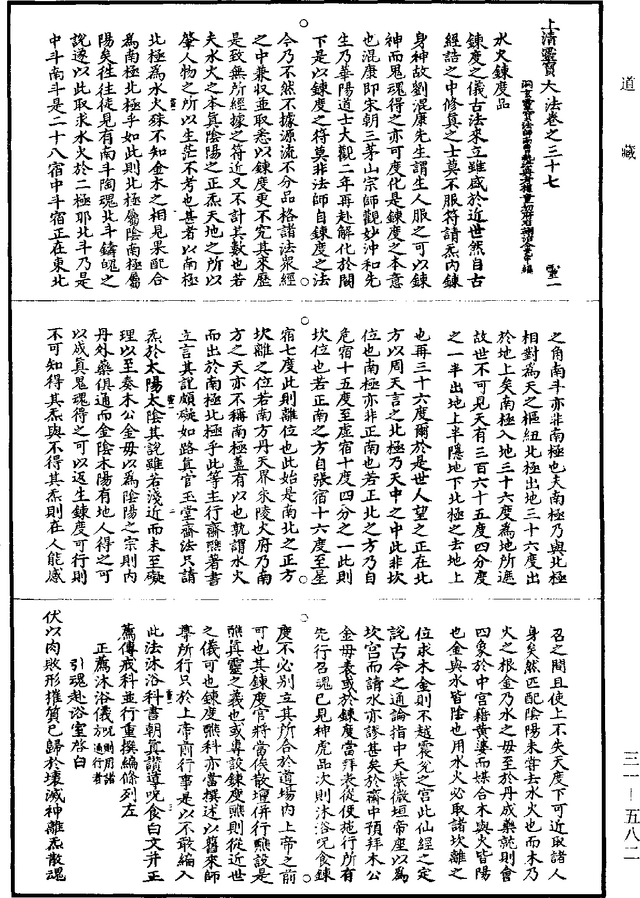 道藏
上清靈寶大法卷之三十七 聖一
洞玄靈寶法師南曹執法典者權童初府右翊治金允中編
水火鍊度品
鍊度之儀古法來立雖盛於近世然自古
經誥之中修真之士莫不服符請炁內鍊
身神故劉混康先生謂生人服之可以鍊
神而鬼魂得之亦可度化是鍊度之本意
也混康即宋朝三茅山宗師觀妙沖和先
生乃華陽道士大觀二年再赴解化於闕
下是以鍊度之符莫非法師自鍊度之法
今乃不然不據源流不分品格諸法眾經
之中兼收並取悉以鍊度更不究其來歷
是致無所經據之符近又不計其數也若
夫水火之本真陰陽之正炁天地之所以
肇人物之所以生茫不考也甚者以南極
北極為水火殊不知金木之相見果配合
為南極北極乎如此則北極屬陰南極屬
陽矣徃徃徒見有南斗陶魂北斗鑄魄之
說遂以此取求水火於二極耶北斗乃是
中斗南斗是二十八宿中斗宿正在東北
之角南斗亦非南極也夫南極乃與北極
相對為天之樞紐北極出地三十六度出
於地上矣南極入地三十六度為地所遮
故世不可見天有三百六十五度四分度
之一半出地上半隱地下北極之去地上
也再三十六度爾於是世人望之正在北
方以周天言之北極乃天中之中此非坎
位也南極亦非正南也若正北之方乃自
危宿十五度至虛宿十度四分之一此則
坎位也若正南之方自張宿十六度至星
宿七度此則離位也此始是南北之正方
坎離之位若南方丹天界永陵火府乃南
方之天亦不稱南極蓋有以也孰謂水火
而出於南極北極乎此等主行齋醮著書
立言其說頗礙如路真官玉堂齋法只請
炁於太陽太陰其說雖若淺近而未至礙
理以至奏木公金母以為陰陽之宗則內
丹外藥俱通而金陰木陽有地人得之可
以成真鬼魂得之可以返生鍊度可行則
不可知得其炁與不得其炁則在人能感
召之間且使上不失天度下可近取諸人
身矣然匹配陰陽未嘗去水火也而木乃
火之根金乃水之母至於丹成藥就則會
四象於中宮藉黃婆而媒合木與火皆陽
也金與水皆陰也用水火必取諸坎離之
位求木金則不越震兌之宮此仙經之定
說古今之通論指中天紫微垣帝座以為
坎宮而請水亦謬甚矣於齋中預拜木公
金母表或於鍊度當拜表從便施行所有
先行召魂已見神虎品次則沐浴呪食鍊
度不必別立其所合於道場內上帝之前
可也其鍊度官將當俟散壇併行醮設是
醮真靈之義也或專設鍊度醮則從近世
之儀可也鍊度醮科亦當撰述以舊來師
尊所行只於上帝前行事是以不敢編入
此法沐浴科書朝真讚導呪食白文并正
薦傳戒科並行重撰編條列左
正薦沐浴儀於呪則用諸通行者
引魂赴浴室啓白
伏以肉敗形摧質已歸於壞滅神離炁散魂
三一—五八二